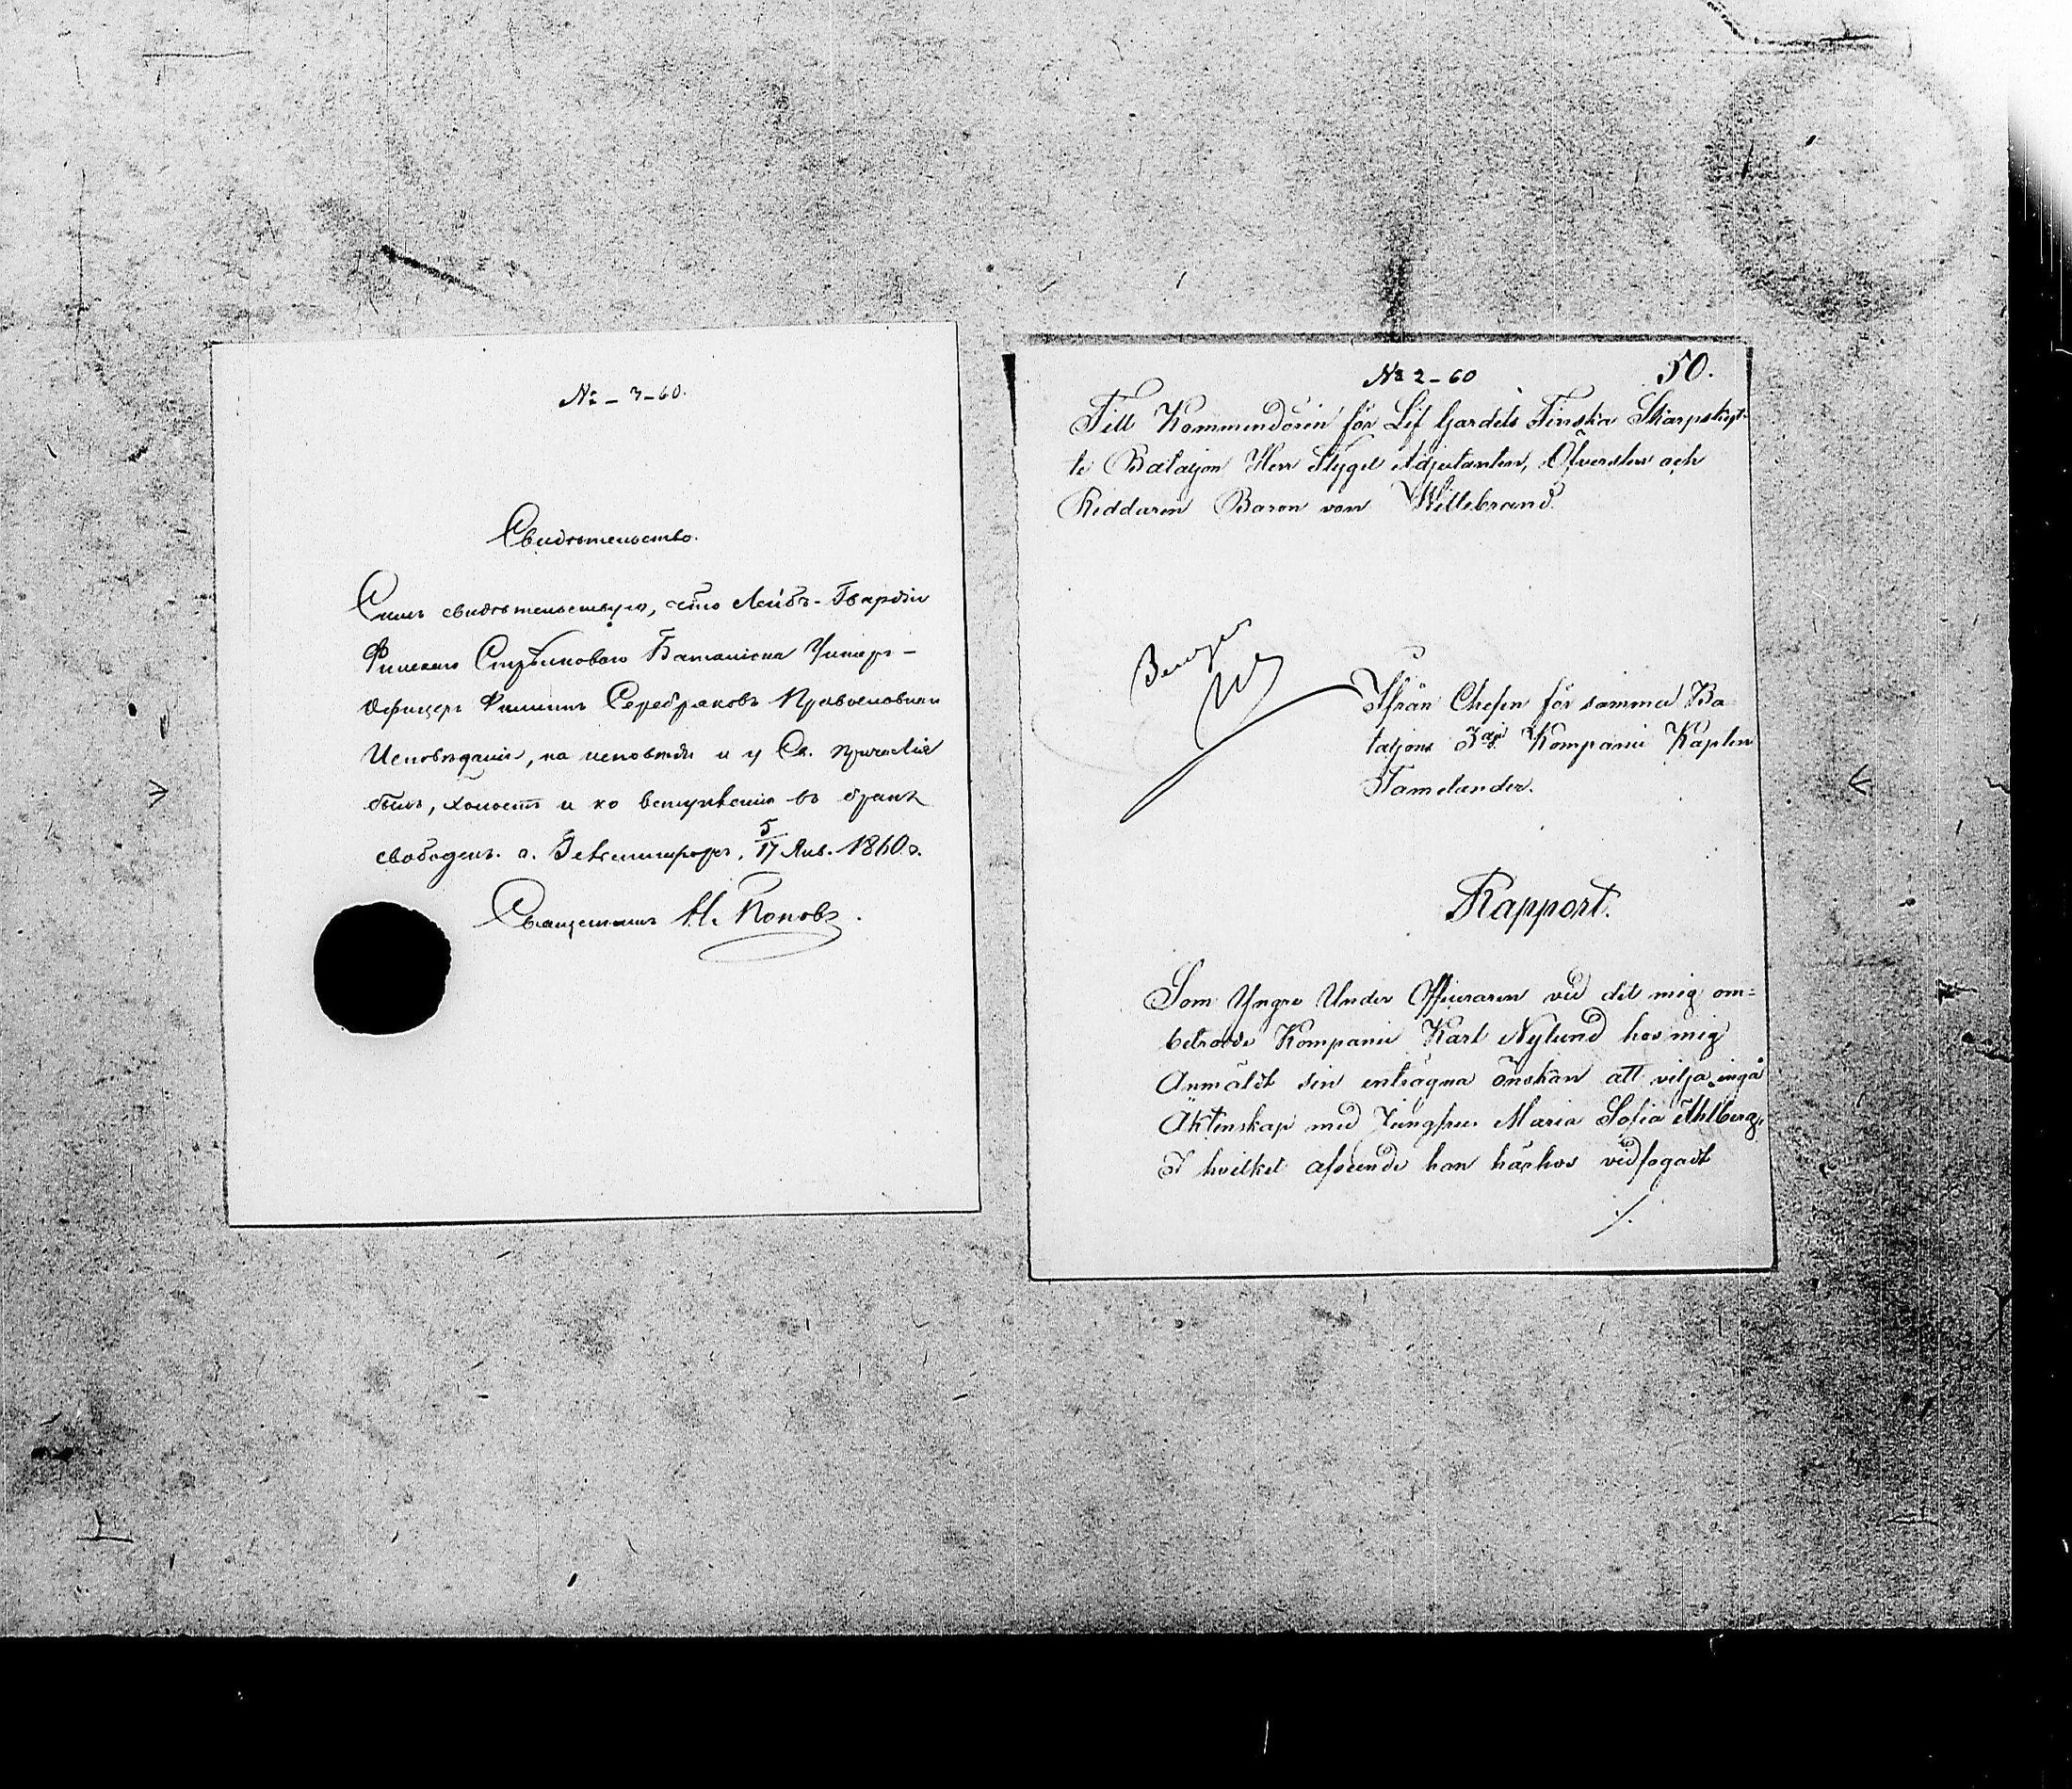 № – 3 – 60.
Свидѣтельство.
Симъ свидѣтельствую, что Лейбъ-Гвардіи
Финскаго Стрѣлковаго Баталіона Унтеръ-
Офицеръ Филиппъ Серебряковъ Православнаго
Исповѣданія, на исповѣди и у Св. причастія
былъ, холостъ и ко вступленію въ бракъ
свободенъ. г. Гельсингфорсъ, 5/17 Янв. 1860 г.
Священникъ Н. Поповъ.
№ 2 – 60
50.
Till Kommendören för Lif Gardets Finska Skarpskyt-
te Bataljon Herr Flygel Adjutanten, Öfversten och
Riddaren Baron von Willebrand.
Ifrån Chefen för samma Ba
taljons 3dje Kompanie Kapten
Tamelander.
Rapport.
Som Yngre Under Officeraren vid det mig om=
betrodde Kompanie Karl Nylund hos mig
Anmäldt sin enträgna önskan att vilja ingå
Äktenskap med Jungfru Maria Sofia Ahlberg,
I hvilket afseende han härhos vidfogadt
./.